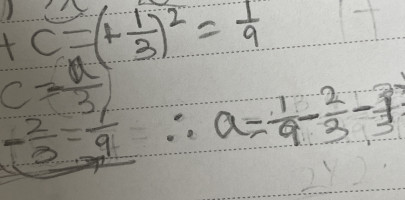 + C = (+1/3)² = 1/9
C = a/3
-2/3 = 1/9 ∴ a = 1/9 - 2/3 -